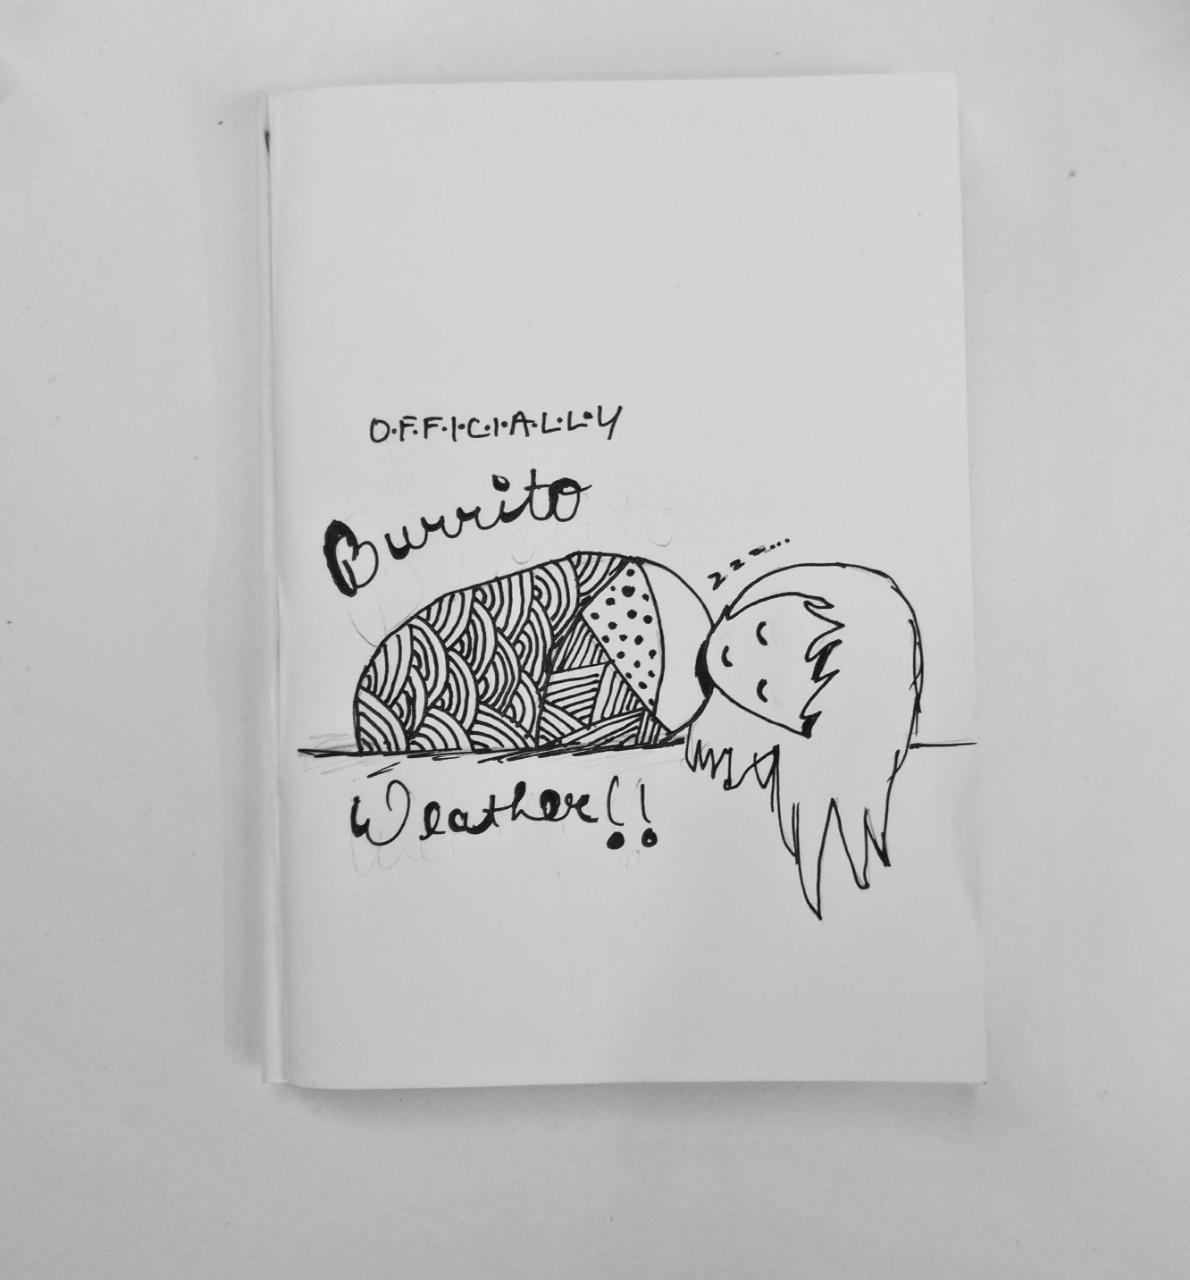 O.F.F.I.C.I.A.L.L.Y
Burrito
zzz...
Weather!!